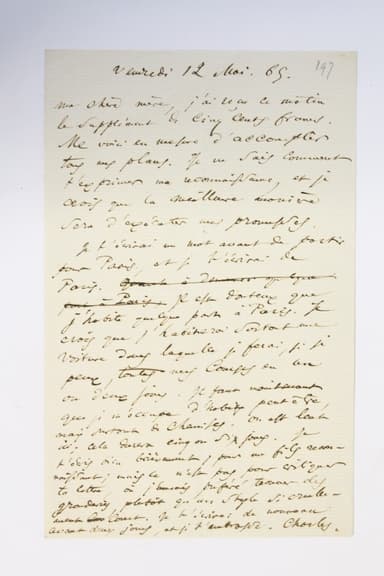 197
Vendredi 12 Mai. 65.
ma chère mère, j'ai reçu ce matin
le supplément de cinq cents francs.
Me voici en mesure d'accomplir
tous mes plans. Je ne sais comment
t'exprimer ma reconnaissance, et je
crois que la meilleure manière
sera d'exécuter mes promesses.
Je t'écrirai un mot avant de partir
pour Paris, et je t'écrirai de
Paris.
Il est douteux que
j'habite quelque part à Paris. Je
crois que j'habiterai surtout une
voiture dans laquelle je ferai, si je
peux, toutes mes courses en un
ou deux jours. Je maintenant
que j'ai besoin d'habits peut-être,
mais surtout de chemises. On est lent
ici. Cela durera cinq ou six jours. Je
t'écris bien brièvement, pour un fils recon-
naissant; mais ce n'est pas pour critiquer
ta lettre, où j'aurais préféré trouver des
gronderies plutôt qu'un style si cruelle-
ment court. Je t'écrirai de nouveau
avant deux jours, et je t'embrasse. Charles.